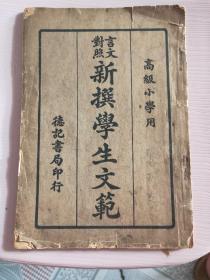 高級小學用
言文
對照
新撰學生文範
德記書局印行